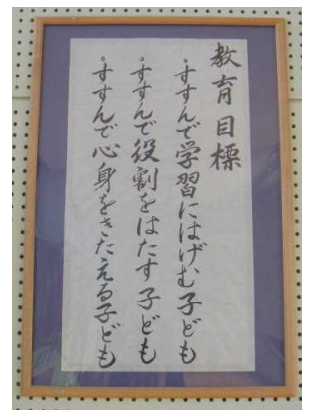 教育目標
・すすんで学習にはげむ子ども
・すすんで役割をはたす子ども
・すすんで心身をきたえる子ども